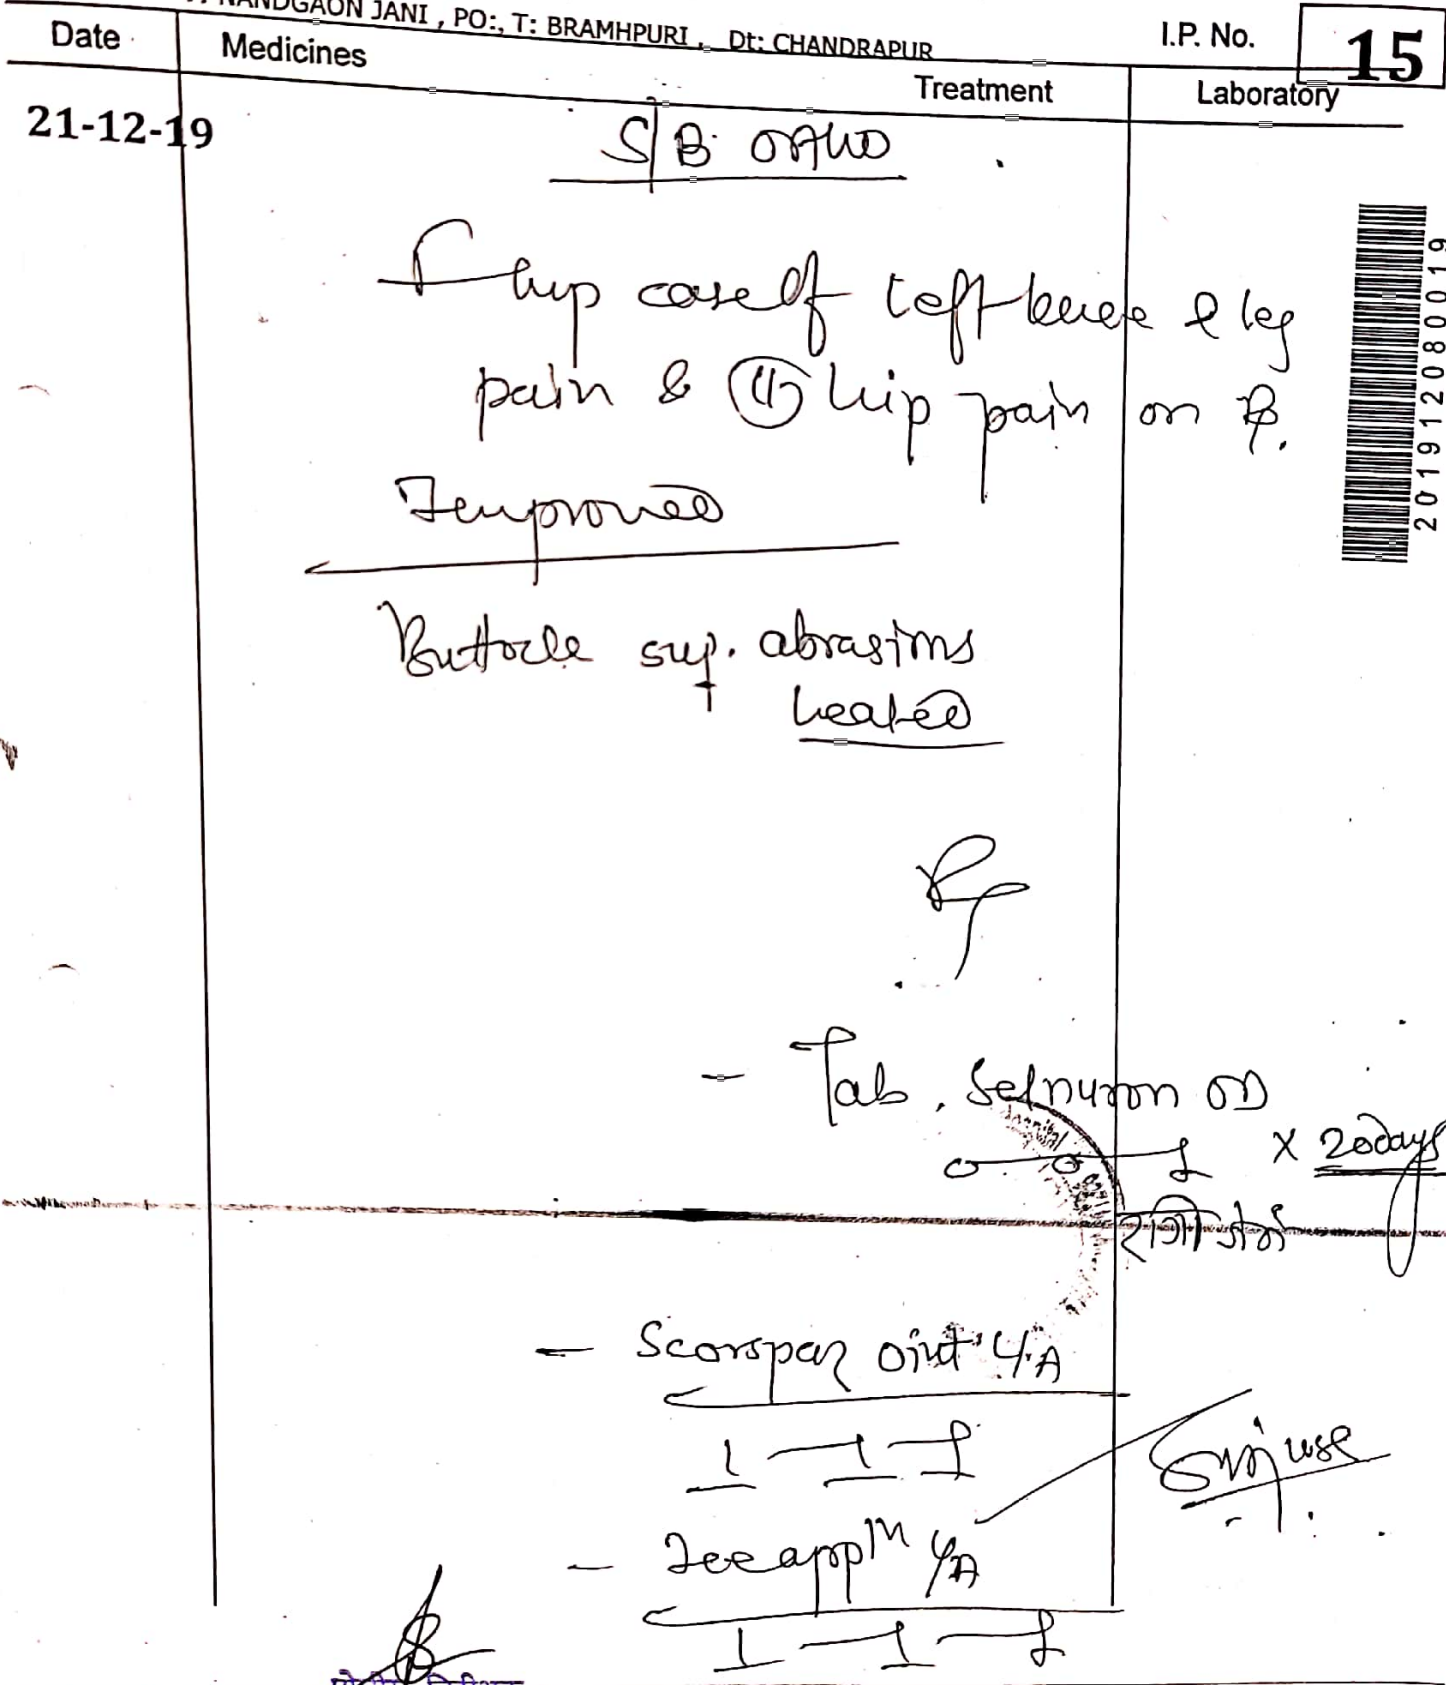 NANDGAON JANI , PO:, T: BRAMHPURI , Dt: CHANDRAPUR
I.P. No. 15
Date Medicines Treatment Laboratory
21-12-19
S/B ortho
f hup case of left knee & leg
pain & hip pain on Rx.
Improved
Buttocle sup. abrasions
healed
Rx
- Tab. Selnuron OD
0-0-1 x 20days
- Scorspaz oint L/A
1-1-1
use
- Ice appln L/A
1-1-1
201912080019